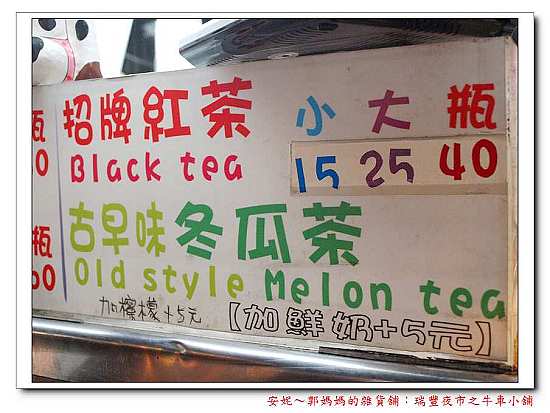 招牌紅茶 小 大 瓶
Black tea 15 25 40
古早味冬瓜茶
Old style Melon tea
加檸檬+5元 【加鮮奶+5元】
瓶
瓶
安妮~郭媽媽的雜貨舖：瑞豐夜市之牛車小舖